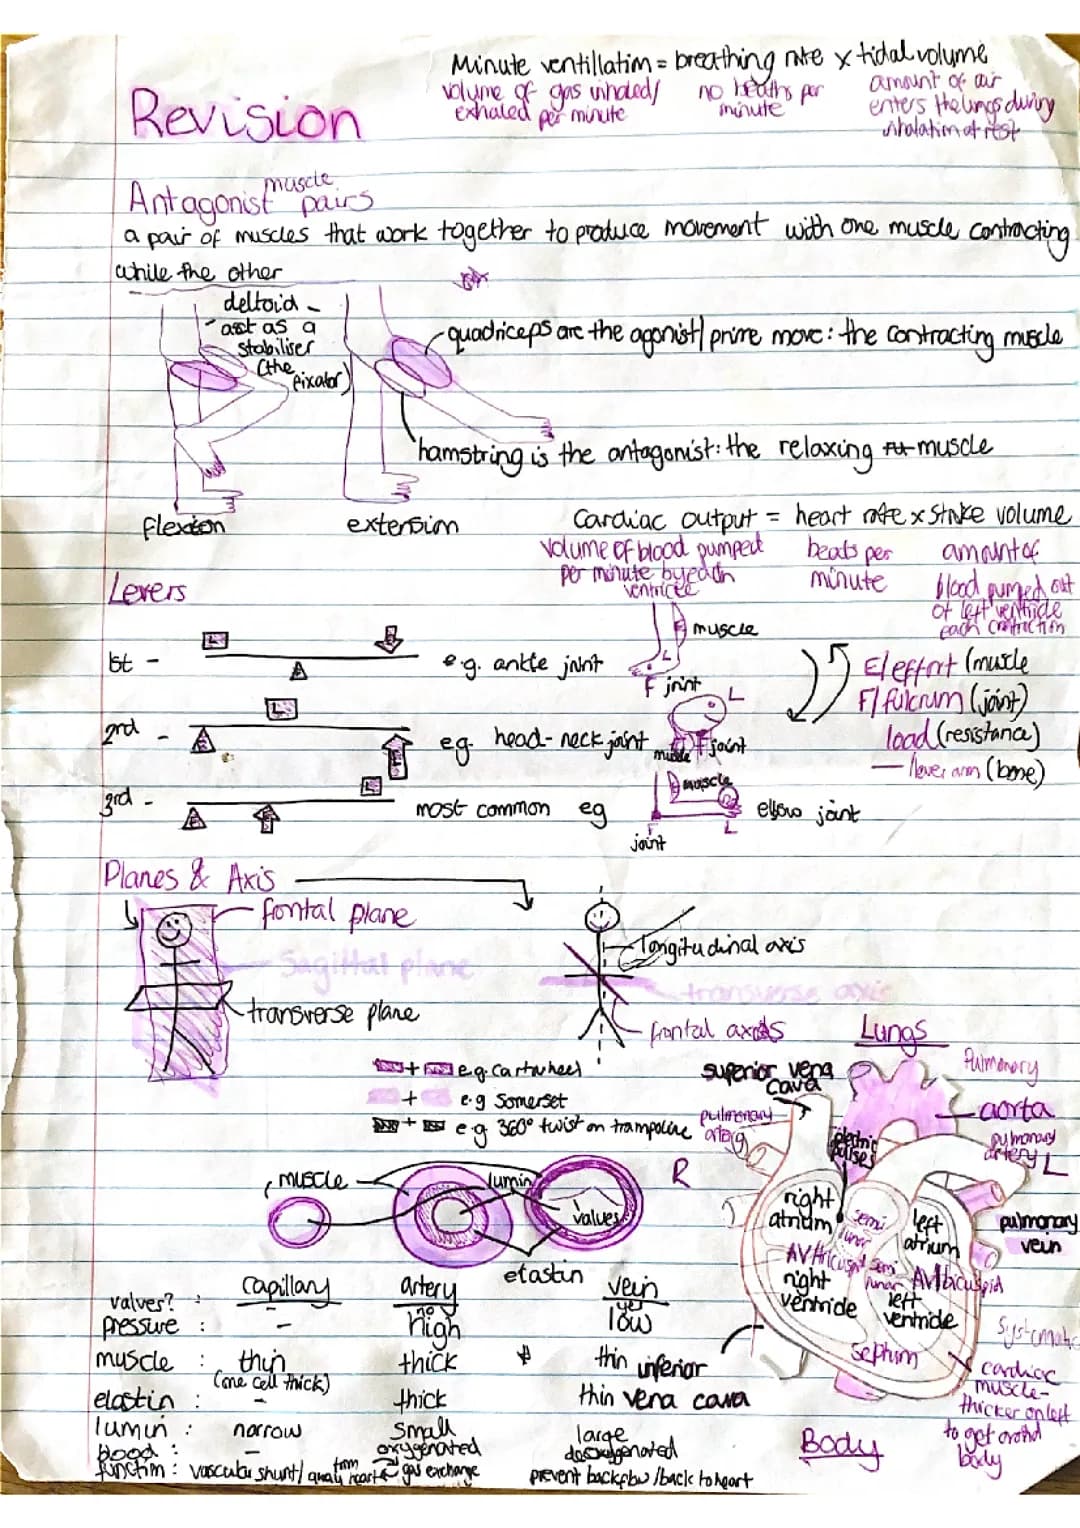 Minute ventillation = breathing rate x tidal volume
volume of gas inhaled/ exhaled per minute
no beaths per minute
amount of air enters the lungs during inhalation at rest
Revision
Antagonist muscle pairs
a pair of muscles that work together to produce movement with one muscle contracting
while the other
deltoid -
act as a
stabiliser
(the fixator)
quadriceps are the agonist/ prime move: the contracting muscle
hamstring is the antagonist: the relaxing muscle
flexion
extension
Cardiac output = heart rate x stroke volume
volume of blood pumped per minute by each ventricle
beats per minute
amount of blood pumped out of left ventricle each contraction
Levers
1st -
L
E
F
e.g. ankle joint
muscle
L
F joint
E/effort (muscle
F/fulcrum (joint)
load (resistance)
— lever arm (bone)
2nd -
L
F
E
eg. head-neck joint
L
muscle
F joint
3rd -
L
F
E
most common eg
muscle
joint
L
elbow joint
Planes & Axis
frontal plane
Sagittal plane
transverse plane
longitudinal axis
transverse axis
frontal axis
+ e.g. Cartwheel
+ e.g Somerset
+ e.g 360° twist on trampoline
muscle
lumin
values
elastin
capillary artery vein
valves? : no yes
pressure : - high low
muscle : thin (one cell thick) thick thin
elastin : - thick thin
lumin : narrow small large
blood : - oxygenated deoxygenated
function : vascular shunt/ gas exchange prevent backflow/back to heart
Lungs
superior vena cava
Pulmonary
aorta
pulmonary artery
pulmonary artery
R
L
electric pulses
right atrium
semi lunar
left atrium
pulmonary vein
AV/tricuspid
semi lunar
AV/bicuspid
right ventricle
left ventricle
septum
Systematic
inferior vena cava
cardiac muscle- thicker on left to get around body
Body